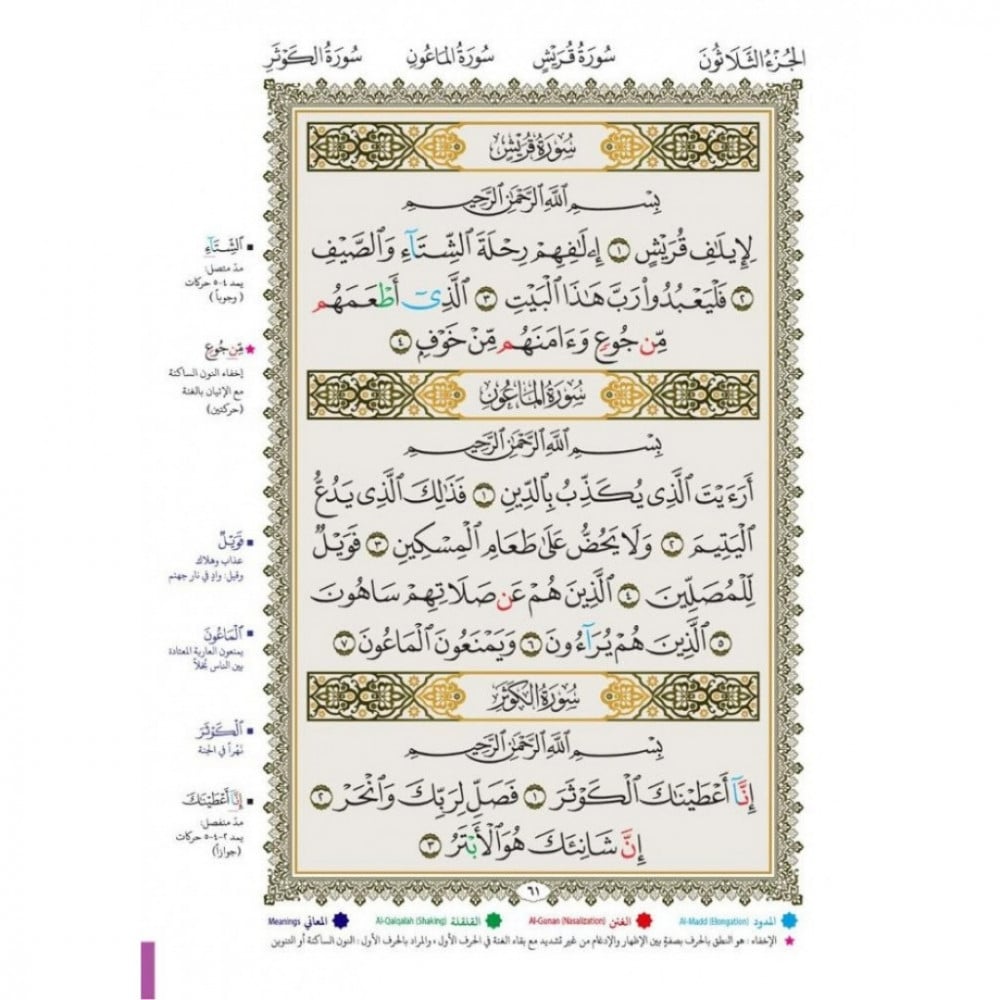 الجزء الثلاثون سورة قريش سورة الماعون سورة الكوثر
سورة قريش
بسم الله الرحمن الرحيم
لِإِيلَافِ قُرَيْشٍ ۝١ إِۦلَافِهِمْ رِحْلَةَ الشِّتَآءِ وَالصَّيْفِ
۝٢ فَلْيَعْبُدُوا۟ رَبَّ هَٰذَا الْبَيْتِ ۝٣ الَّذِىٓ أَطْعَمَهُم
مِّن جُوعٍ وَءَامَنَهُم مِّنْ خَوْفٍۭ ۝٤
سورة الماعون
بسم الله الرحمن الرحيم
أَرَءَيْتَ الَّذِى يُكَذِّبُ بِالدِّينِ ۝١ فَذَٰلِكَ الَّذِى يَدُعُّ
الْيَتِيمَ ۝٢ وَلَا يَحُضُّ عَلَىٰ طَعَامِ الْمِسْكِينِ ۝٣ فَوَيْلٌ
لِّلْمُصَلِّينَ ۝٤ الَّذِينَ هُمْ عَن صَلَاتِهِمْ سَاهُونَ
۝٥ الَّذِينَ هُمْ يُرَآءُونَ ۝٦ وَيَمْنَعُونَ الْمَاعُونَ ۝٧
سورة الكوثر
بسم الله الرحمن الرحيم
إِنَّآ أَعْطَيْنَاكَ الْكَوْثَرَ ۝١ فَصَلِّ لِرَبِّكَ وَانْحَرْ ۝٢
إِنَّ شَانِئَكَ هُوَ الْأَبْتَرُ ۝٣
٦١
الشِّتَآءِ
مدّ متصل:
يمد ٤-٥ حركات
(وجوباً)
مِّن جُوعٍ
إخفاء النون الساكنة
مع الإتيان بالغنة
(حركتين)
فَوَيْلٌ
عذاب وهلاك
وقيل: وادٍ في نار جهنم
الْمَاعُونَ
يمنعون العارية المعتادة
بين الناس بُخلاً
الْكَوْثَرَ
نهراً في الجنة
إِنَّآ أَعْطَيْنَاكَ
مدّ منفصل:
يمد ٢-٤-٥ حركات
(جوازاً)
المدود Al-Madd (Elongation) الغنن Al-Gunan (Nasalization) القلقلة Al-Qalqalah (Shaking) المعاني Meanings
الإخفاء : هو النطق بالحرف بصفةٍ بين الإظهار والإدغام من غير تشديد مع بقاء الغنة في الحرف الأول ، والمراد بالحرف الأول : النون الساكنة أو التنوين